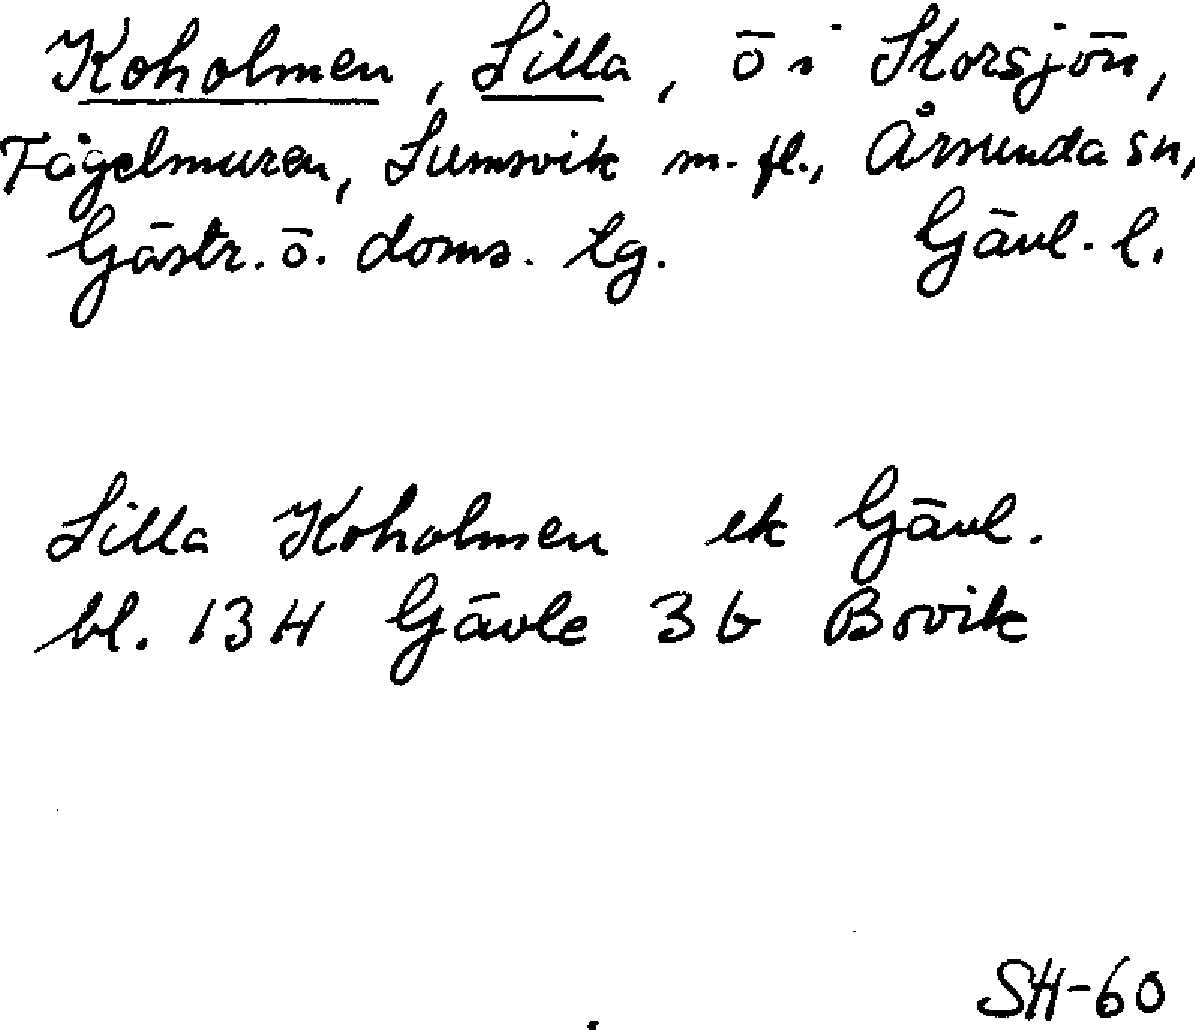 Koholmen, Lilla, ö i Storsjön,
Fågelmuren, Lumsvik m.fl., Årsunda sn,
Gästr. ö. doms. lg. Gävl. l.
Lilla Koholmen ek Gävl.
bl. 13H Gävle 3b Bovik
SH-60